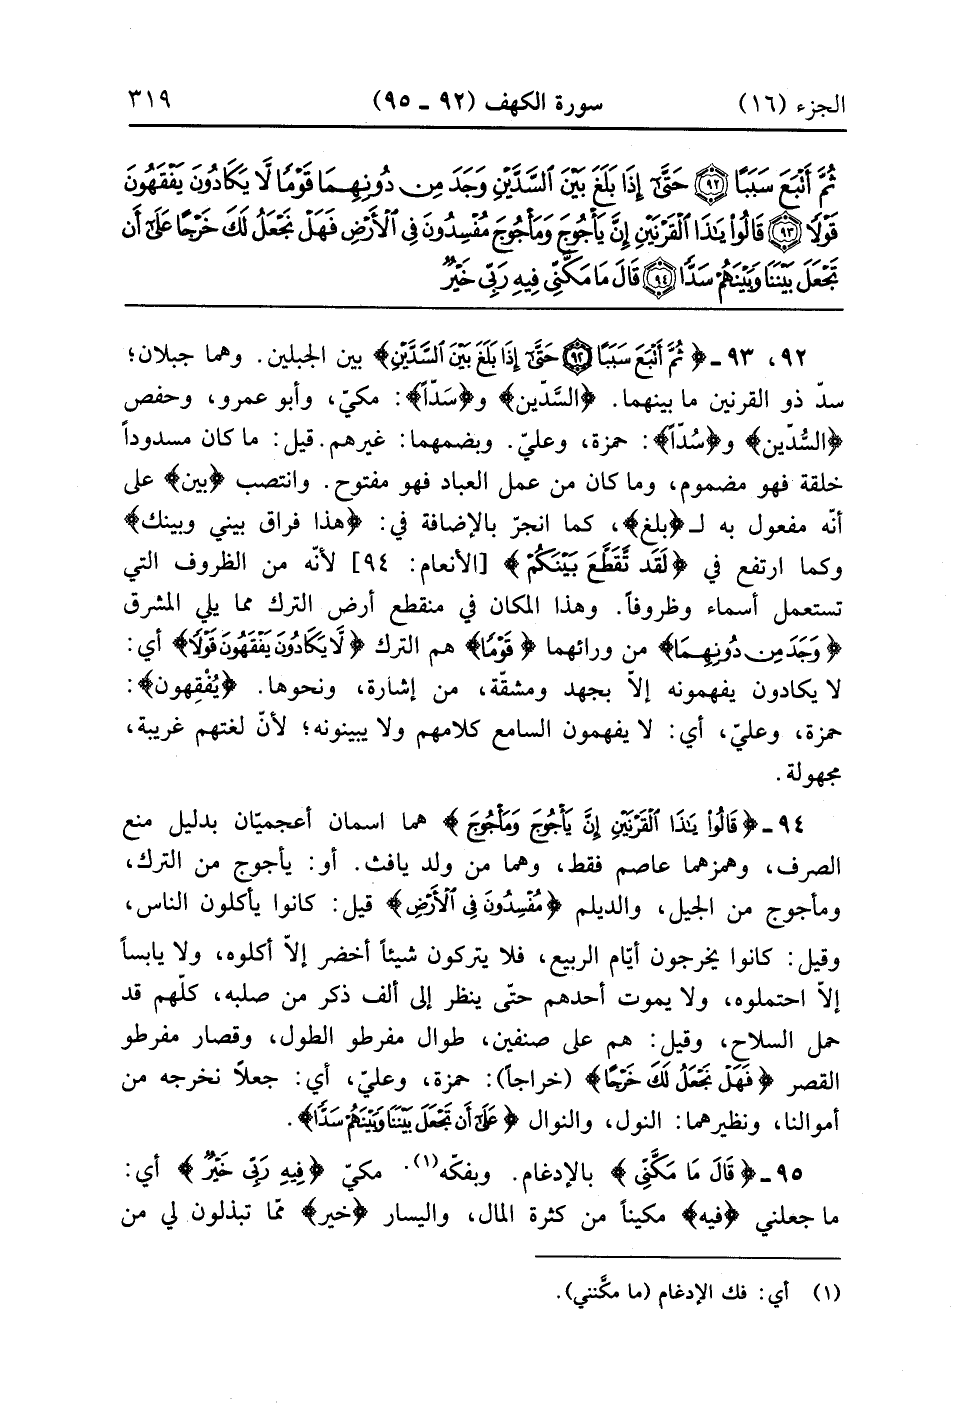 الجزء (١٦)
سورة الكهف (٩٢ ـ ٩٥)
٣١٩
ثُمَّ أَتْبَعَ سَبَبًا ﴿٩٢﴾ حَتَّىٰٓ إِذَا بَلَغَ بَيْنَ ٱلسَّدَّيْنِ وَجَدَ مِن دُونِهِمَا قَوْمًا لَّا يَكَادُونَ يَفْقَهُونَ
قَوْلًا ﴿٩٣﴾ قَالُوا۟ يَٰذَا ٱلْقَرْنَيْنِ إِنَّ يَأْجُوجَ وَمَأْجُوجَ مُفْسِدُونَ فِى ٱلْأَرْضِ فَهَلْ نَجْعَلُ لَكَ خَرْجًا عَلَىٰٓ أَن
تَجْعَلَ بَيْنَنَا وَبَيْنَهُمْ سَدًّا ﴿٩٤﴾ قَالَ مَا مَكَّنِّى فِيهِ رَبِّى خَيْرٌ
٩٢، ٩٣ ـ ﴿ثُمَّ أَتْبَعَ سَبَبًا ﴿٩٢﴾ حَتَّىٰٓ إِذَا بَلَغَ بَيْنَ ٱلسَّدَّيْنِ﴾ بين الجبلين. وهما جبلان؛
سدّ ذو القرنين ما بينهما. ﴿السَّدّين﴾ و﴿سَدّاً﴾: مكيّ، وأبو عمرو، وحفص
﴿السُّدّين﴾ و﴿سُدّاً﴾: حمزة، وعليّ. وبضمهما: غيرهم. قيل: ما كان مسدوداً
خلقة فهو مضموم، وما كان من عمل العباد فهو مفتوح. وانتصب ﴿بين﴾ على
أنّه مفعول به لـ﴿بلغ﴾، كما انجرّ بالإضافة في: ﴿هذا فراق بيني وبينك﴾
وكما ارتفع في ﴿لَقَد تَّقَطَّعَ بَيْنَكُمْ﴾ [الأنعام: ٩٤] لأنّه من الظروف التي
تستعمل أسماء وظروفاً. وهذا المكان في منقطع أرض الترك مما يلي المشرق
﴿وَجَدَ مِن دُونِهِمَا﴾ من ورائهما ﴿قَوْمًا﴾ هم الترك ﴿لَّا يَكَادُونَ يَفْقَهُونَ قَوْلًا﴾ أي:
لا يكادون يفهمونه إلاّ بجهد ومشقّة، من إشارة، ونحوها. ﴿يُفْقِهون﴾:
حمزة، وعليّ، أي: لا يفهمون السامع كلامهم ولا يبينونه؛ لأنّ لغتهم غريبة،
مجهولة.
٩٤ ـ ﴿قَالُوا۟ يَٰذَا ٱلْقَرْنَيْنِ إِنَّ يَأْجُوجَ وَمَأْجُوجَ﴾ هما اسمان أعجميّان بدليل منع
الصرف، وهمزهما عاصم فقط، وهما من ولد يافث. أو: يأجوج من الترك،
ومأجوج من الجيل، والديلم ﴿مُفْسِدُونَ فِى ٱلْأَرْضِ﴾ قيل: كانوا يأكلون الناس،
وقيل: كانوا يخرجون أيّام الربيع، فلا يتركون شيئاً أخضر إلاّ أكلوه، ولا يابساً
إلاّ احتملوه، ولا يموت أحدهم حتّى ينظر إلى ألف ذكر من صلبه، كلّهم قد
حمل السلاح، وقيل: هم على صنفين، طوال مفرطو الطول، وقصار مفرطو
القصر ﴿فَهَلْ نَجْعَلُ لَكَ خَرْجًا﴾ (خراجاً): حمزة، وعليّ، أي: جعلاً نخرجه من
أموالنا، ونظيرهما: النول، والنوال ﴿عَلَىٰٓ أَن تَجْعَلَ بَيْنَنَا وَبَيْنَهُمْ سَدًّا﴾.
٩٥ ـ ﴿قَالَ مَا مَكَّنِّى﴾ بالإدغام. وبفكّه(١). مكيّ ﴿فِيهِ رَبِّى خَيْرٌ﴾ أي:
ما جعلني ﴿فيه﴾ مكيناً من كثرة المال، واليسار ﴿خير﴾ ممّا تبذلون لي من
(١) أي: فك الإدغام (ما مكَّنني).